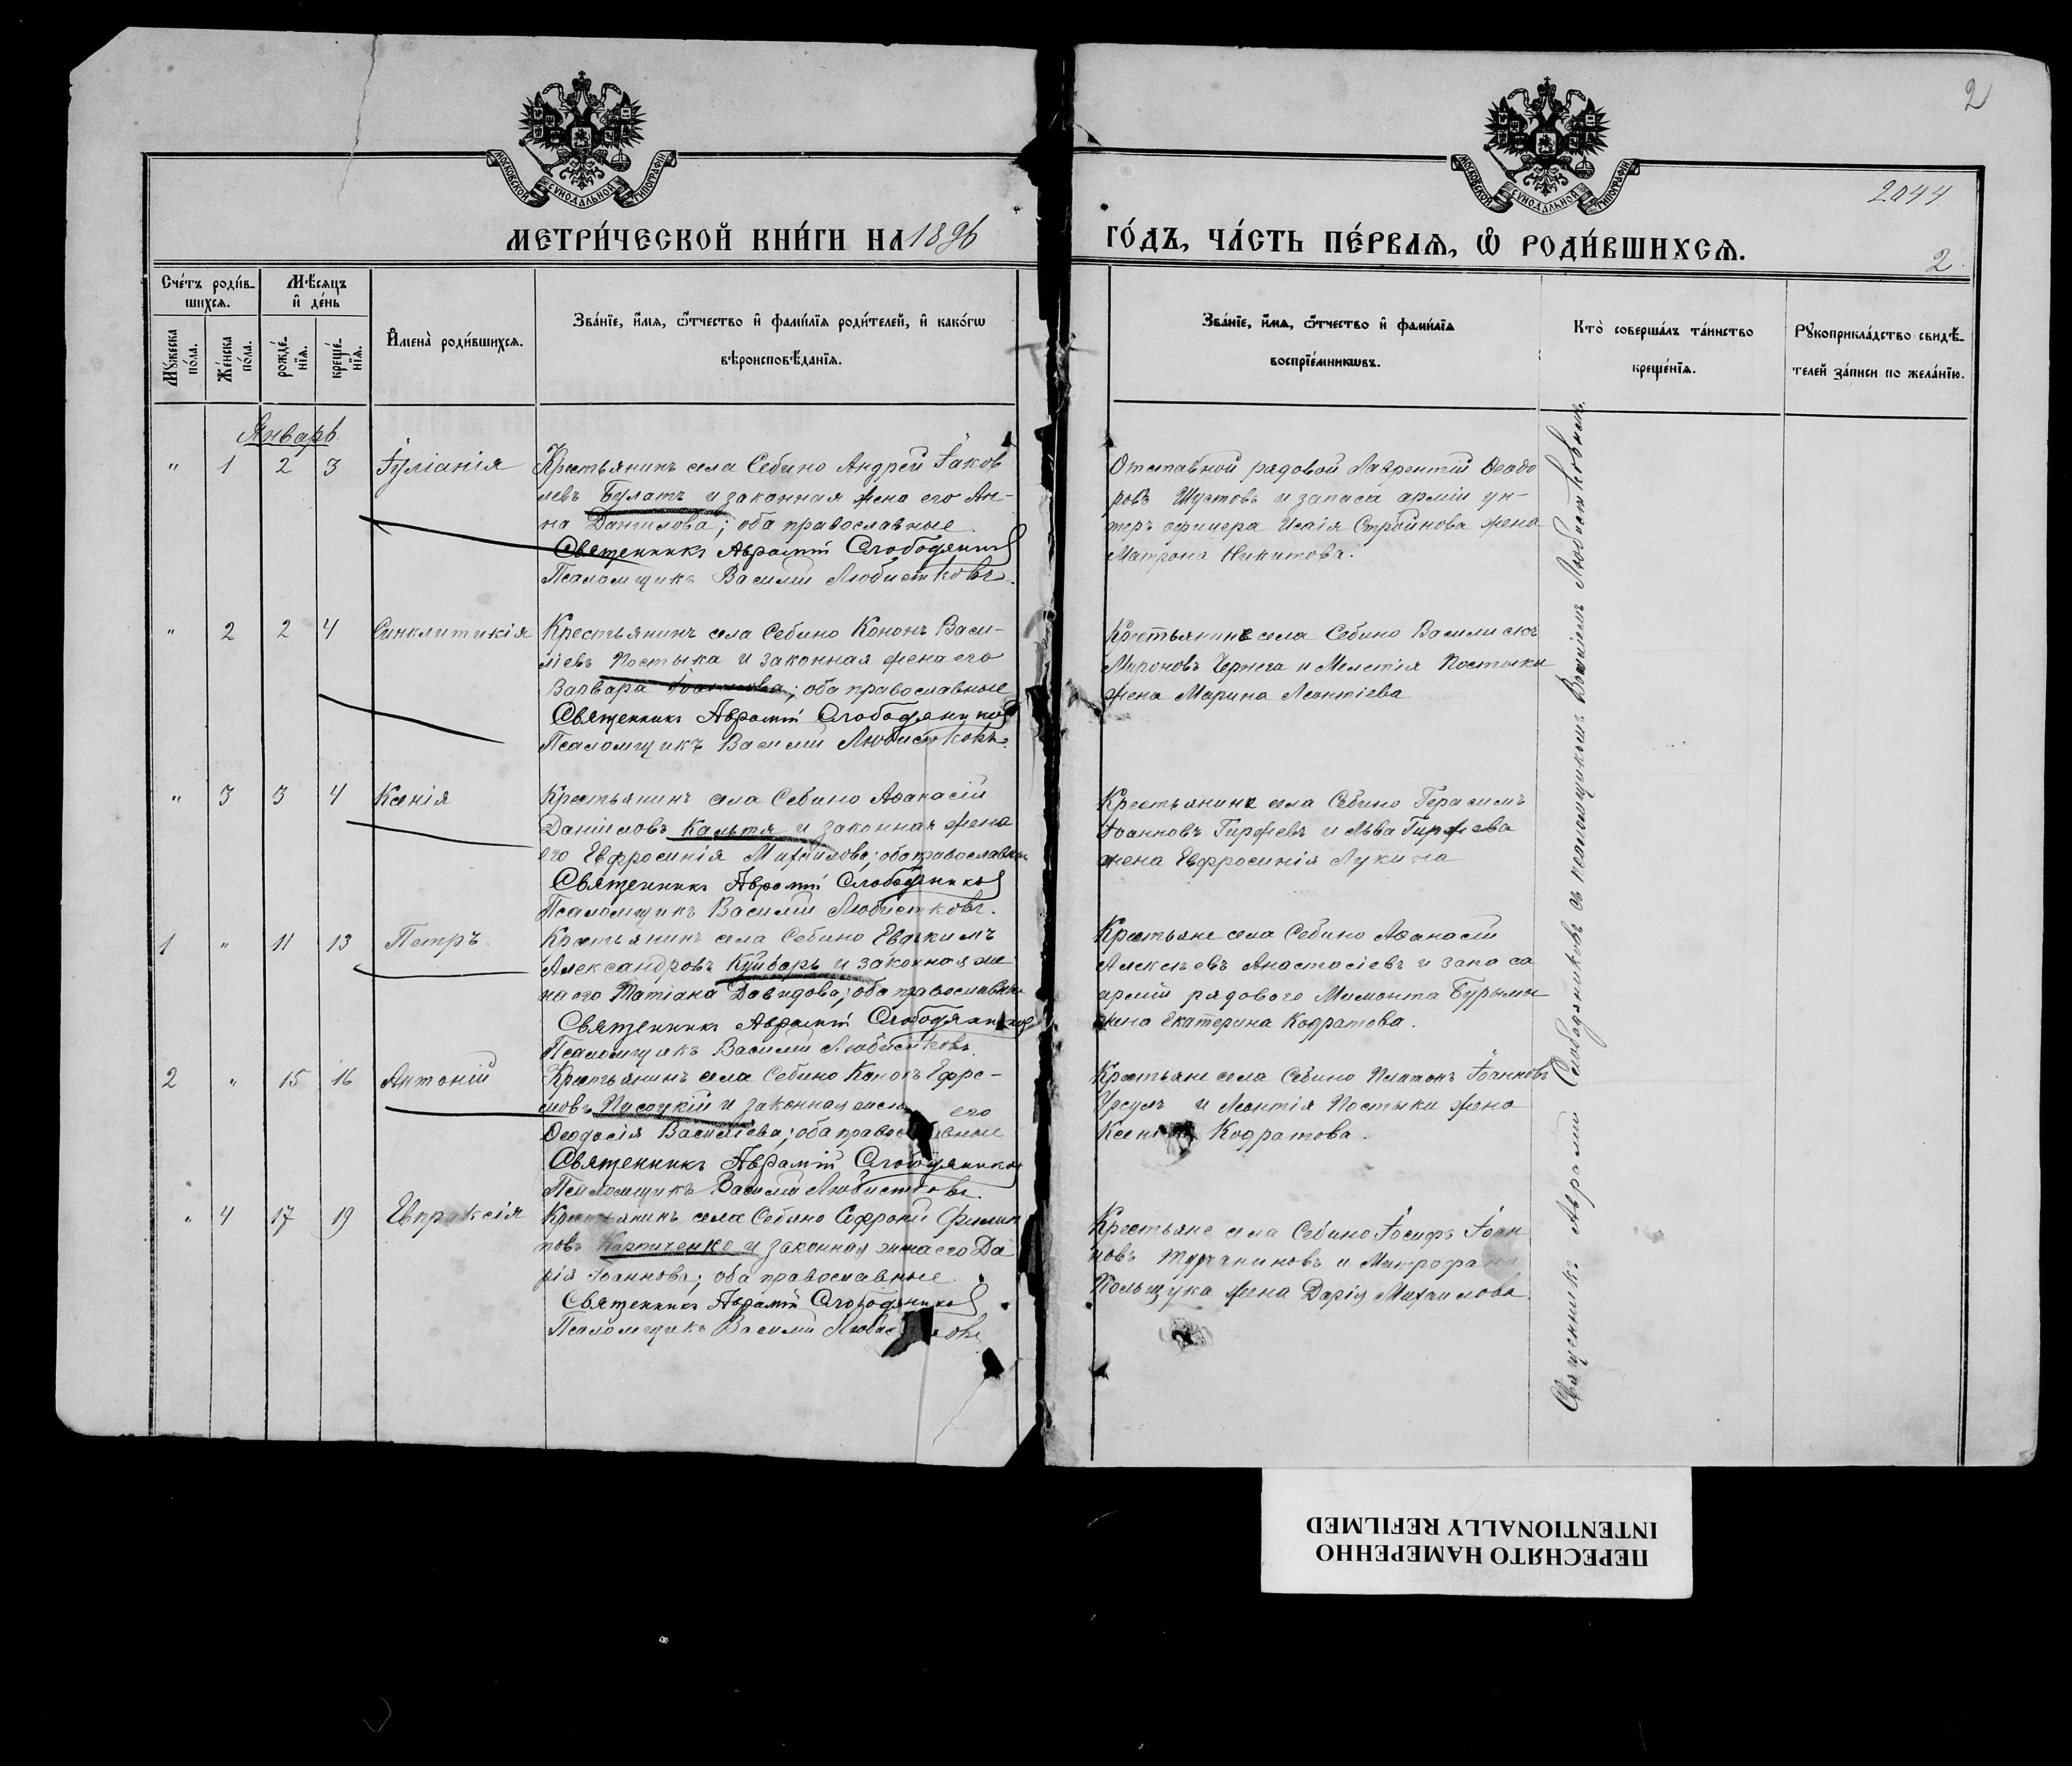 2
МОСКОВСКОЙ СУНОДАЛЬНОЙ ТИПОГРАФІИ
МОСКОВСКОЙ СУНОДАЛЬНОЙ ТИПОГРАФІИ
2044
МЕТРИ́ЧЕСКОЙ КНИ́ГИ НА 1896
ГО́ДЪ, ЧА́СТЬ ПЕ́РВАѦ, Ѡ҆ РОДИ́ВШИХСѦ.
2.
Сче́тъ роди́в-
шихсѧ.
Мѣ́сѧцъ
и҆ де́нь
Мꙋ́жеска
по́ла.
Же́нска
по́ла.
рожде́-
нїѧ.
креще́-
нїѧ.
И҆мена̀ роди́вшихсѧ.
Зва́нїе, и҆́мѧ, ѻ҆́тчество и҆ фами́лїѧ роди́телей, и҆ како́гѡ
вѣроисповѣ́данїѧ.
Зва́нїе, и҆́мѧ, ѻ҆́тчество и҆ фами́лїѧ
воспрїе́мникѡвъ.
Кто̀ соверша́лъ та́инство
креще́нїѧ.
Рꙋкоприкла́дство свидѣ́-
телей за́писи по жела́нїю.
Январь.
" 1 2 3 Іуліанія
Крестьянинъ села Себино Андрей Іаков
левъ Булатъ и законная жена его Ан-
на Данилова; оба православные
Священникъ Аврамій Слободяников
Псаломщикъ Василій Любистковъ.
Отставной рядовой Лаврентій Ѳеодо
ровъ Шустовъ и запаса арміи ун-
теръ офицера Исаія Стройнова жена
Матрона Никитова.
" 2 2 4 Синклитикія
Крестьянинъ села Себино Кононъ Васи-
ліевъ Постыка и законная жена его
Варвара Іоаннова; оба православные
Священникъ Аврамій Слободяников
Псаломщикъ Василій Любистковъ.
Крестьянинъ села Себино Василискъ
Мироновъ Чернега и Мелетія Постыки
жена Марина Леонтіева
" 3 3 4 Ксенія
Крестьянинъ села Себино Аѳанасій
Даніиловъ Кальтя и законная жена
его Евфросинія Михаилова; оба православные
Священникъ Аврамій Слободяников
Псаломщикъ Василій Любистковъ.
Крестьянинъ села Себино Герасимъ
Іоанновъ Гиржевъ и Льва Гиржева
жена Евфросинія Лукина
1 " 11 13 Петръ
Крестьянинъ села Себино Евдокимъ
Александровъ Куйбарь и законная же
на его Татіана Давидова; оба православные
Священникъ Аврамій Слободяников
Псаломщикъ Василій Любистковъ.
Крестьяне села Себино Аѳанасій
Алексѣевъ Анастасіевъ и запаса
арміи рядового Мамонта Бурымы
жена Екатерина Кодратова.
2 " 15 16 Антоній
Крестьянинъ села Себино Кононъ Ефре-
мовъ Писоцкій и законная жена его
Ѳеодосія Василіева; оба православные
Священникъ Аврамій Слободяников
Псаломщикъ Василій Любистковъ.
Крестьяне села Себино Платонъ Іоанновъ
Урсулъ и Леонтія Постыки жена
Ксенія Кодратова.
" 4 17 19 Евпраксія
Крестьянинъ села Себино Софроній Филип
повъ Карпиченко и законная жена его Да
рія Іоаннова; оба православные.
Священникъ Аврамій Слободяников
Псаломщикъ Василій Любистковъ
Крестьяне села Себино Іосифъ Іоан
новъ Турчаниновъ и Митрофана
Польщука жена Дарія Михаилова
Священникъ Аврамій Слободяниковъ съ псаломщикомъ Василіемъ Любистковымъ.
ПЕРЕСНЯТО НАМЕРЕННО
INTENTIONALLY REFILMED